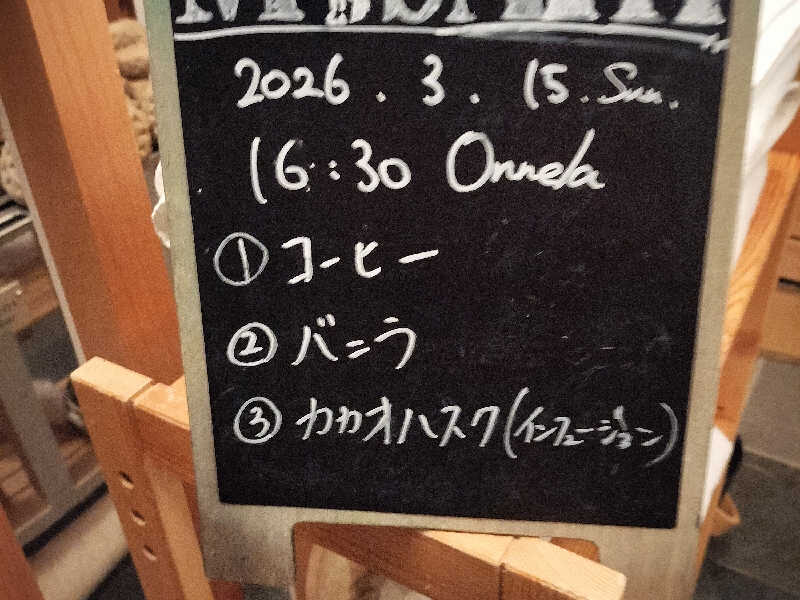 2026.3.15.Sun.
16:30 Onnela
① コーヒー
② バニラ
③ カカオハスク(インフュージョン)